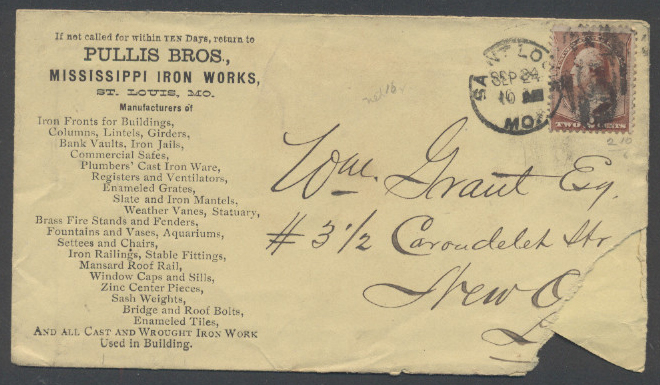 If not called for within TEN DAYS, return to
PULLIS BROS.,
MISSISSIPPI IRON WORKS,
ST. LOUIS, MO.
Manufacturers of
Iron Fronts for Buildings,
Columns, Lintels, Girders,
Bank Vaults, Iron Jails,
Commercial Safes,
Plumbers' Cast Iron Ware,
Registers and Ventilators,
Enameled Grates,
Slate and Iron Mantels,
Weather Vanes, Statuary,
Brass Fire Stands and Fenders,
Fountains and Vases, Aquariums,
Settees and Chairs,
Iron Railings, Stable Fittings,
Mansard Roof Rail,
Window Caps and Sills,
Zinc Center Pieces,
Sash Weights,
Bridge and Roof Bolts,
Enameled Tiles,
AND ALL CAST AND WROUGHT IRON WORK
Used in Building.
SAINT LOU
SEP 24
10 AM
MO.
TWO CENTS
210
Wm. Grant Esq.
# 3 1/2 Carondelet Str
New O